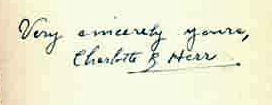 Very sincerely yours,
Charlotte B. Herr